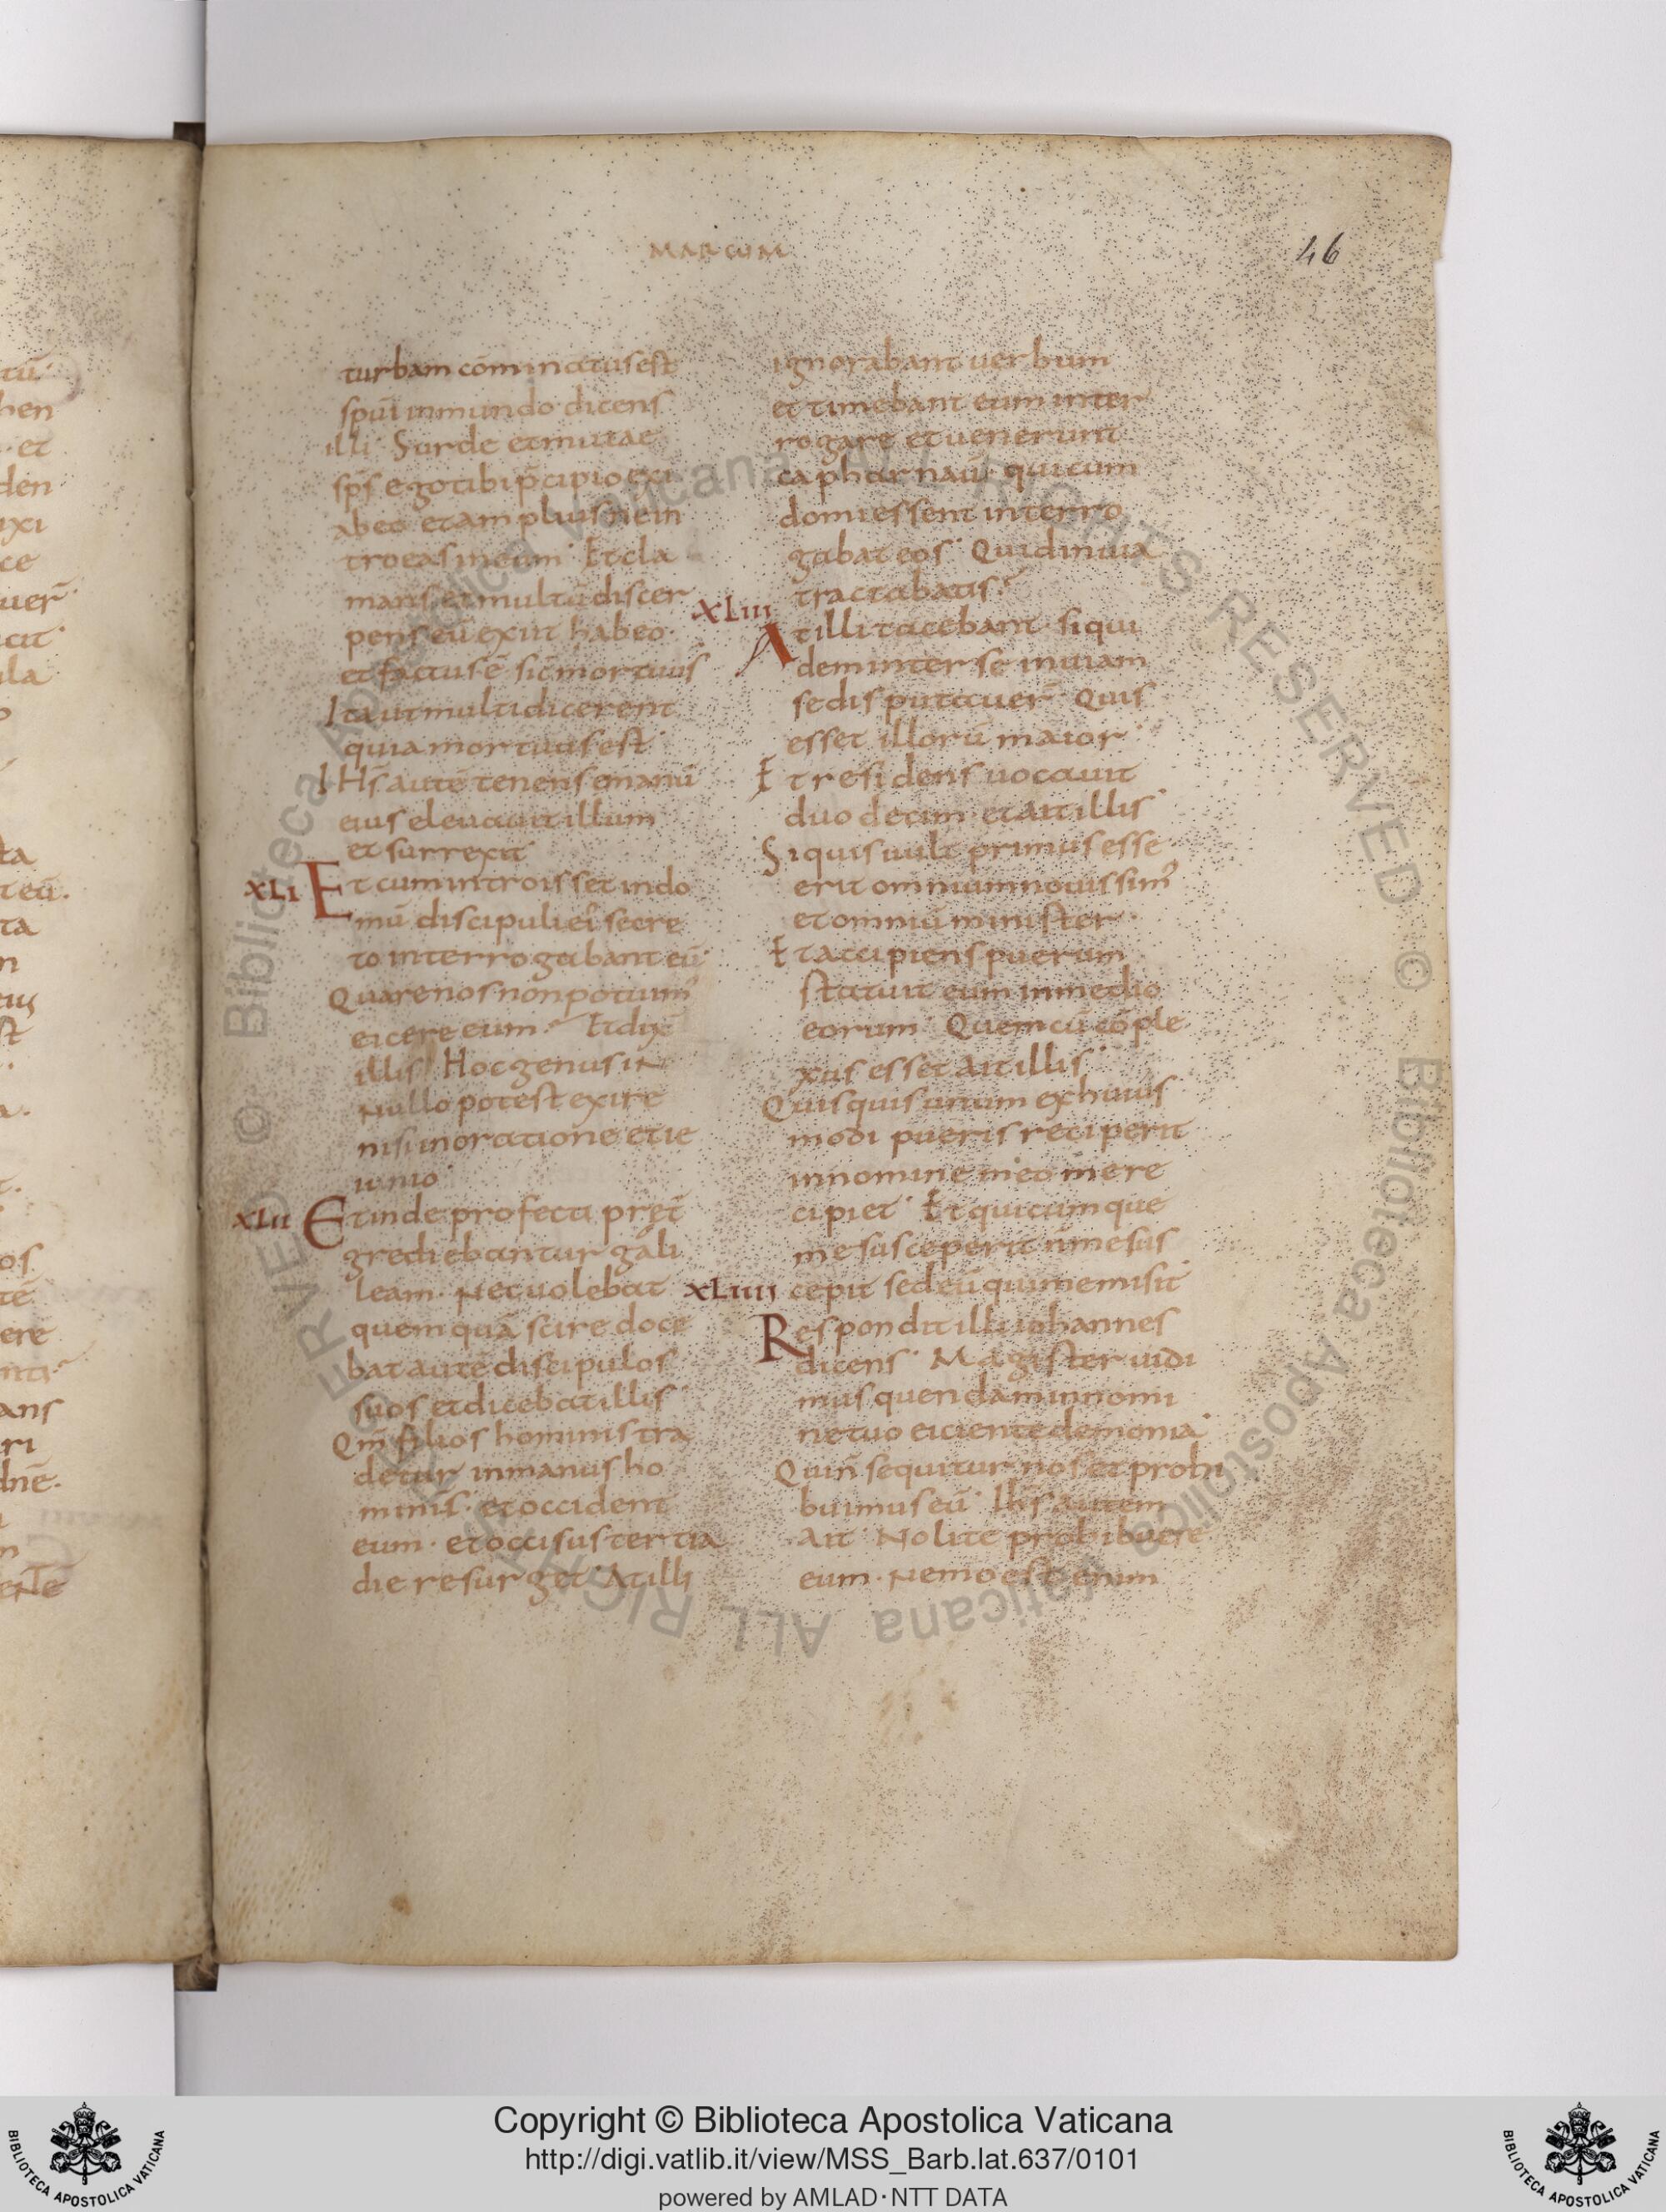 MARCUM
46
turbam cōminatus est
spūi inmundo dicens
illi· Surde et mutae
sp̄s ego tibi p̄cipio exi
ab eo et amplius ne in
troeas in eum· Et cla
mans et multū discer
pens eū exiit hab eo·
et factus ē sic̄ mortuus
Ita ut multi dicerent
quia mortuus est·
IHs̄ autē tenens emanū
eius eleuauit illum
et surrexit·
XLI Et cum introisset indo
mū discipuli ei' secre
to interrogabant eū·
Quare nos non potuim'
eicere eum· Et dix̄
illis Hoc genus in
nullo potest exire
nisi in oratione et ie
iunio·
XLII Et inde profecti pręt
grediebantur gali
leam· Nec uolebat
quemquā scire doce
bat autē discipulos
suos et dicebat illis·
Qm̄ filios hominis tra
detur in manus ho
minis· et occident
eum· et occisus tertia
die resurget· At illi
ignorabant uerbum
et timebant eum inter
rogare et uenerunt
capharnaū· qui cum
domi essent interro
gabat eos· Quid in uia
tractabatis·
XLIII At illi tacebant· siqui
dem inter se in uiam
se disputauer̄· Quis
esset illorū maior·
Et residens uocauit
duodecim· et ait illis·
Si quis uult primus esse
erit omnium nouissim'
et omniū minister·
Et accipiens puerum
statuit eum in medio
eorum· Quem cū cōple
xus esset ait illis·
Quisquis unum ex huius
modi pueris receperit
in nomine meo me re
cipiet· Et quicumque
me susceperit n̄ me sus
XLIIII cepit sed eū qui me misit·
Respondit illi iohannes
dicens· Magister uidi
mus quendam in nomi
ne tuo eiciente demonia·
Qui n̄ sequitur nos et prohi
buimus eū· Ihs̄ autem
ait· Nolite prohibere
eum· Nemo est enim
Copyright © Biblioteca Apostolica Vaticana
http://digi.vatlib.it/view/MSS_Barb.lat.637/0101
powered by AMLAD·NTT DATA
BIBLIOTECA APOSTOLICA VATICANA
BIBLIOTECA APOSTOLICA VATICANA